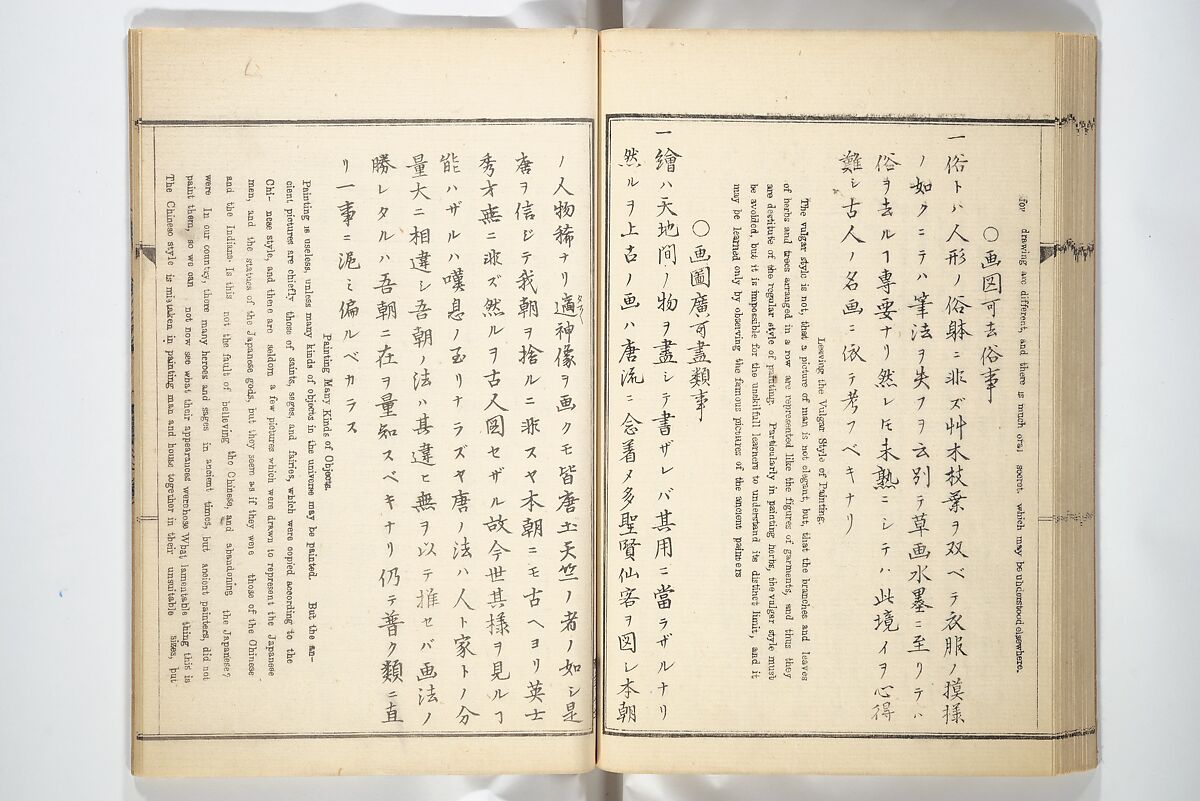 for drawing are different, and there is much oral secret, which may be understood elsewhere.
〇画図可去俗事
一俗トハ人形ノ俗躰ニ非ズ艸木枝葉ヲ双ベテ衣服ノ摸様
ノ如クニテハ筆法ヲ失フヲ云別テ草画水墨ニ至リテハ
俗ヲ去ルヿ専要ナリ然レ𪜈未熟ニシテハ此境イヲ心得
難シ古人ノ名画ニ依テ考フベキナリ
Leaving the Vulgar Style of Painting.
The vulgar style is not, that a picture of man is not elegant, but, that the branches and leaves
of herbs and trees arranged in a row are represented like the figures of garments, and thus they
are destitute of the regular style of painting. Particularly in painting herbs, the vulgar style must
be avoided, but it is impossible for the unskilfull learners to understand its distinct limit, and it
may be learned only by observing the famous pictures of the ancient painters
〇画圖廣可盡類事
一繪ハ天地間ノ物ヲ盡シテ書ザレバ其用ニ當ラザルナリ
然ルヲ上古ノ画ハ唐流ニ念着メ多聖賢仙客ヲ図シ本朝
ノ人物稀ナリ適神像ヲ画クモ皆唐土天竺ノ者ノ如シ是
唐ヲ信ジテ我朝ヲ捨ルニ非スヤ本朝ニモ古ヘヨリ英士
秀才無ニ非ズ然ルヲ古人図セザル故今世其様ヲ見ルヿ
能ハザルハ嘆息ノ至リナラズヤ唐ノ法ハ人ト家トノ分
量大ニ相違シ吾朝ノ法ハ其違ヒ無ヲ以テ推セバ画法ノ
勝レタルハ吾朝ニ在ヲ量知スベキナリ仍テ普ク類ニ直
リ一事ニ泥ミ偏ルベカラス
Painting Many Kinds of Objects.
Painting is useless, unless many kinds of objects in the universe may be painted. But the an-
cient pictures are chiefly those of saints, sages, and fairies, which were copied according to the
Chi- nese style, and there are seldom a few pictures which were drawn to represent the Japanese
men, and the statues of the Japanese gods, but they seem as if they were those of the Chinese
and the Indians. Is this not the fault of believing the Chinese, and abandoning the Japanese?
were In our country, there many heroes and sages in ancient times, but ancient painters, did not
paint them, so we can not now see what their appearances werehose What lamentable thing this is
The Chinese style is mistaken in painting man and house together in their unsuitable sizes, but